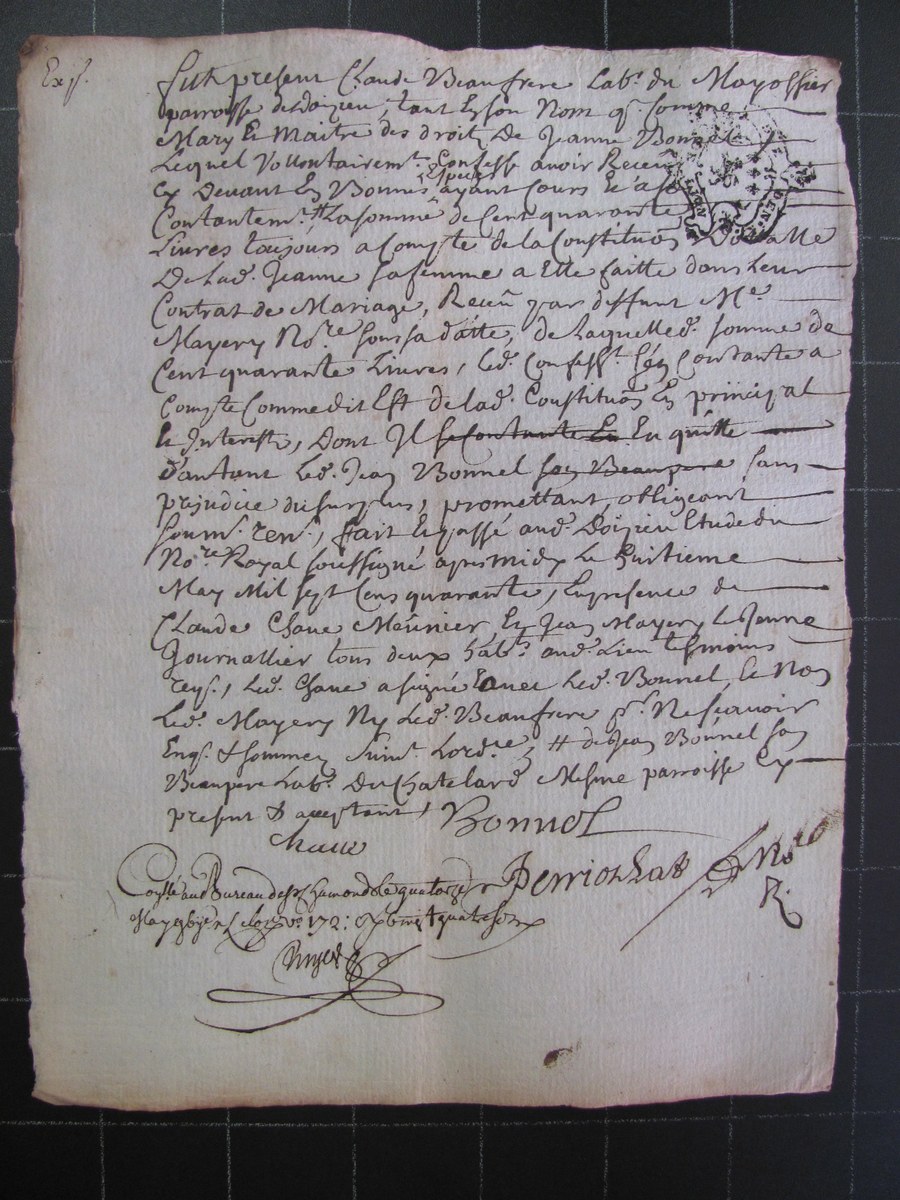 Exp.
fut present Claude Beaufrere Lab.r du Mayossier
parroisse de doizieu, tant En son Nom q. Comme
Mary Et Maitre des droit De Jeanne Bonnel
Lequel Vollontairem.t Confesse avoir Receu
Cy Devant En Bonnes Especes ayant Cours Et a
Contantem.t # La somme de Cent quarante
Livres toujours a Compte de la Constitution Dotalle
De lad. Jeanne sa femme a Elle faitte dans Leur
Contrat de Mariage, Receu par deffunt M.e
Mayery No.re sous sa datte, de Laquelle d. somme de
Cent quarante Livres, Led. Confess.t Contante a
Compte Comme dit Est de lad. Constitution En principal
Et Interests, Dont Il se Contante En En quitte
d'autant Led. Jean Bonnel son Beaupere sans
prejudice du surplus, promettant, obligeant
soum. ren., fait Et passé aud. Doizieu Etude du
No.re Royal soussigné apres midy Le huitieme
May Mil sept Cens quarante, En presence de
Claude Chave Meunier Et Jean Mayery Le Jeune
Journallier tous deux hab.ts aud. Lieu tesmoins
reqs., Led. Chave a signé avec Led. Bonnel, Et Non
Led. Mayery Ny Led. Beaufrere p.r Ne sçavoir
Enqs. & sommez suiv.t L'ord.ce, # de Jean Bonnel son
Beaupere Lab.r Du Chatelard Mesme parroisse Cy
present & acceptant,
Bonnel
Chave
No.re
R.
Con.llé au Bureau de S.t Chamond Le quatorze
May vo. 172: vingt quatre sols